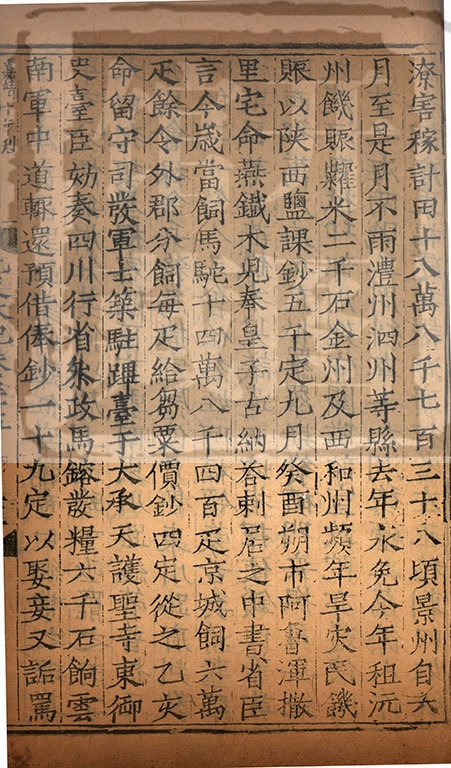 潦害稼計田十八萬八千七百三十八頃景州自六
月至是月不雨澧州泗州等縣去年水免今年租沅
州饑賑糶米二千石金州及西和州頻年旱灾民饑
賑以陝西鹽課鈔五千定九月癸酉朔市阿魯渾撒
里宅命燕鐵木兒奉皇子古納荅剌居之中書省臣
言今歲當飼馬駝十四萬八千四百疋京城飼六萬
疋餘令外郡分飼每疋給芻粟價鈔四定從之乙亥
命留守司發軍士築駐蹕臺于大承天護聖寺東御
史臺臣劾奏四川行省參政馬鎔發糧六千石餉雲
南軍中道輒還預借俸鈔一十九定以娶妾又詬罵